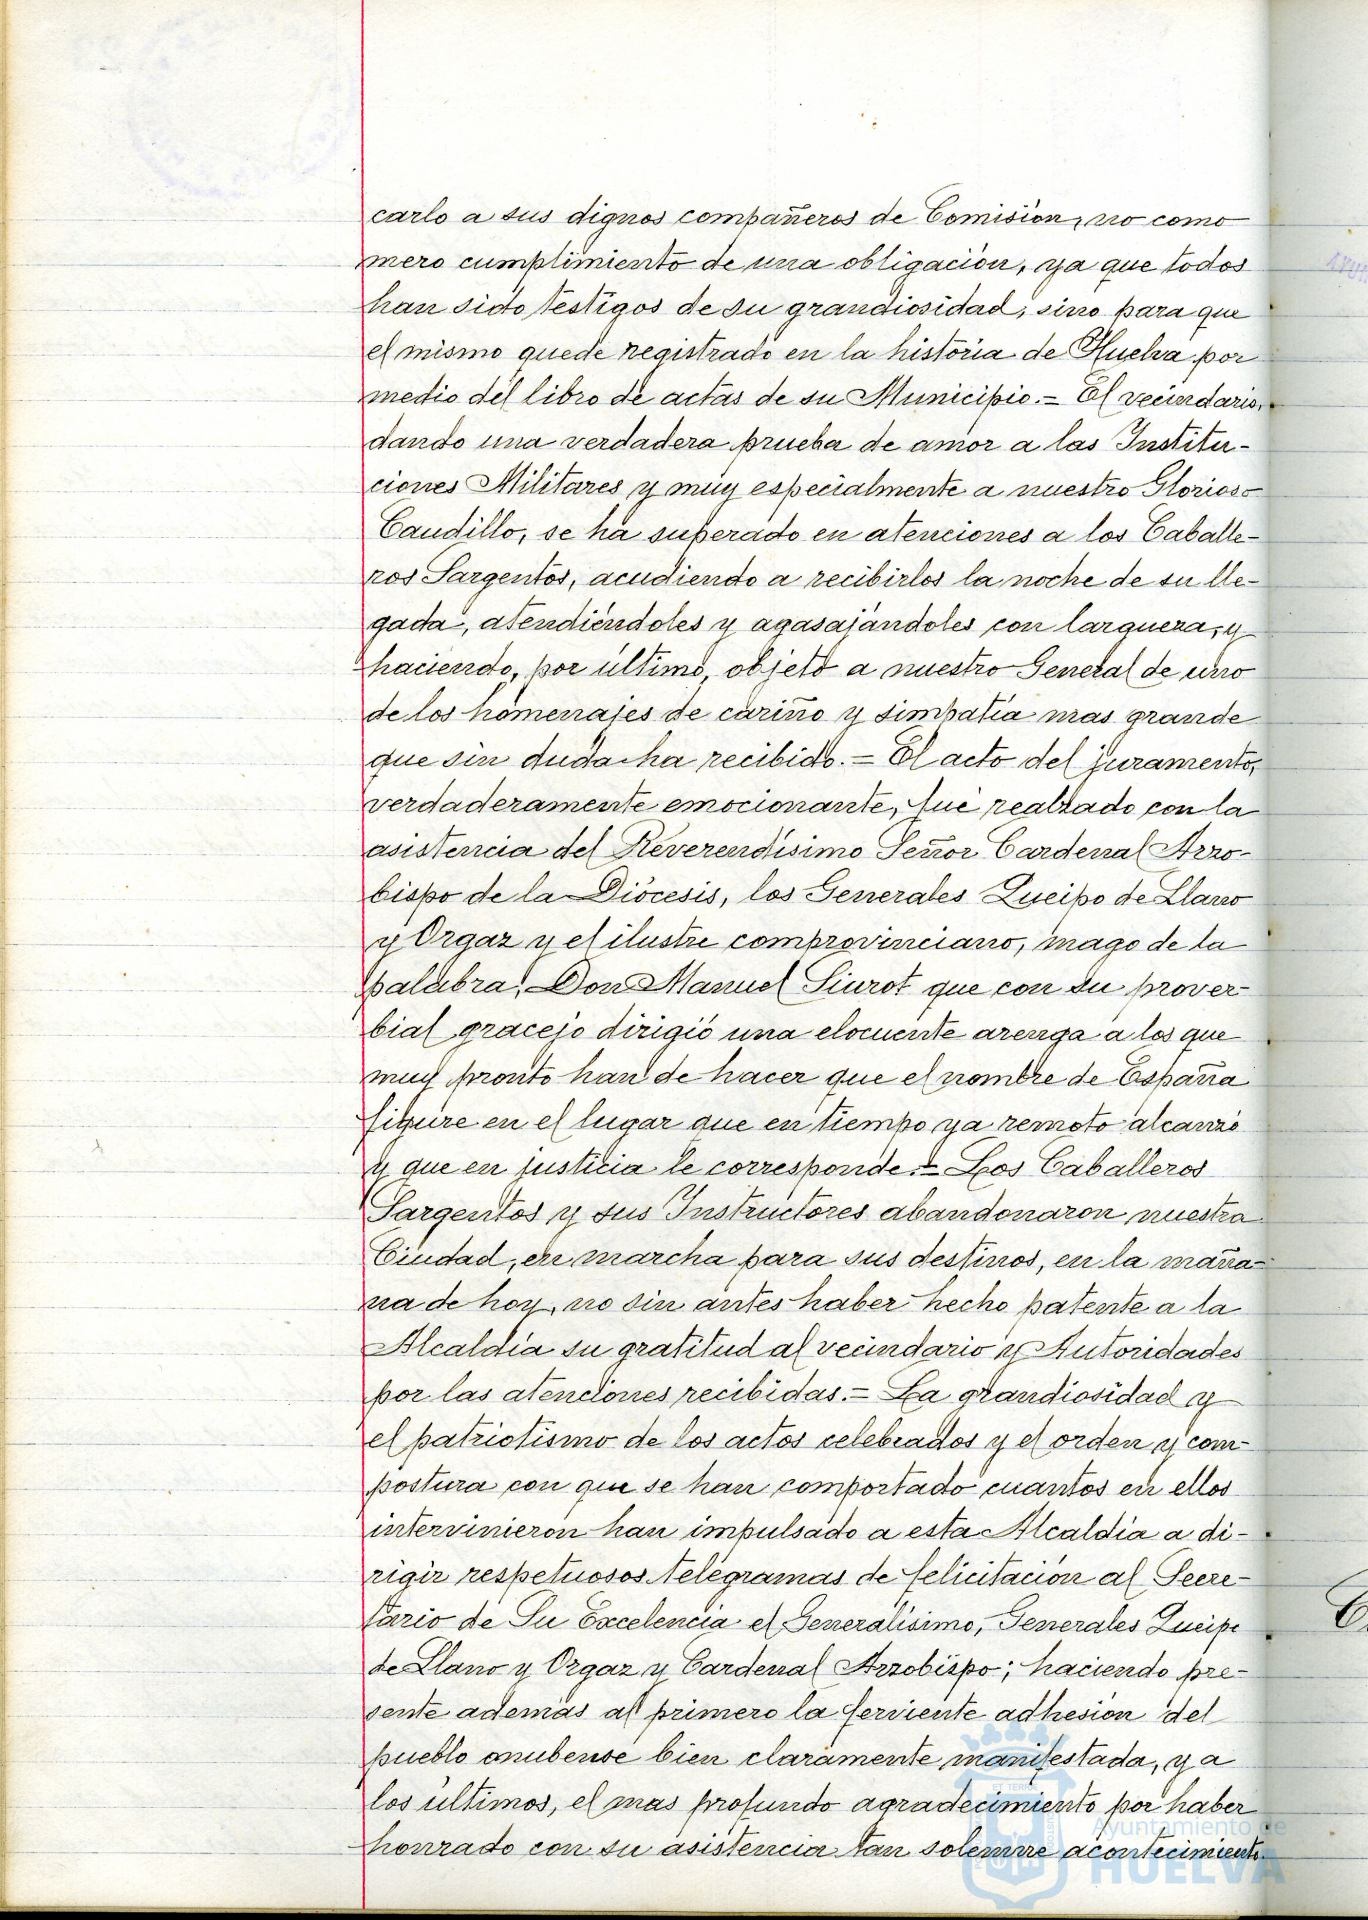 carlo a sus dignos compañeros de Comisión, no como
mero cumplimiento de una obligación, ya que todos
han sido testigos de su grandiosidad, sino para que
el mismo quede registrado en la história de Huelva por
medio del libro de actas de su Municipio.= El vecindario,
dando una verdadera prueba de amor a las Institu-
ciones Militares y muy especialmente a nuestro Glorioso
Caudillo, se ha superado en atenciones a los Caballe-
ros Sargentos, acudiendo a recibirlos la noche de su lle-
gada, atendiéndoles y agasajándoles con largueza, y
haciendo, por último, objeto a nuestro General de uno
de los homenajes de cariño y simpatía mas grande
que sin duda ha recibido.= El acto del juramento,
verdaderamente emocionante, fué realzado con la
asistencia del Reverendísimo Señor Cardenal Arzo-
bispo de la Diócesis, los Generales Queipo de Llano
y Orgaz y el ilustre comprovinciano, mago de la
palabra, Don Manuel Siurot que con su prover-
bial gracejo dirigió una elocuente arenga a los que
muy pronto han de hacer que el nombre de España
figure en el lugar que en tiempo ya remoto alcanzó
y que en justicia le corresponde.= Los Caballeros
Sargentos y sus Instructores abandonaron nuestra
Ciudad, en marcha para sus destinos, en la maña-
na de hoy, no sin antes haber hecho patente a la
Alcaldía su gratitud al vecindario y Autoridades
por las atenciones recibidas.= La grandiosidad y
el patriotismo de los actos celebrados y el orden y com-
postura con que se han comportado cuantos en ellos
intervinieron han impulsado a esta Alcaldía a di-
rigir respetuosos telegramas de felicitación al Secre-
tario de Su Excelencia el Generalísimo, Generales Queipo
de Llano y Orgaz y Cardenal Arzobispo; haciendo pre-
sente además al primero la ferviente adhesión del
pueblo onubense bien claramente manifestada, y a
los últimos, el mas profundo agradecimiento por haber
honrado con su asistencia tan solemne acontecimiento.
Ayuntamiento de
HUELVA